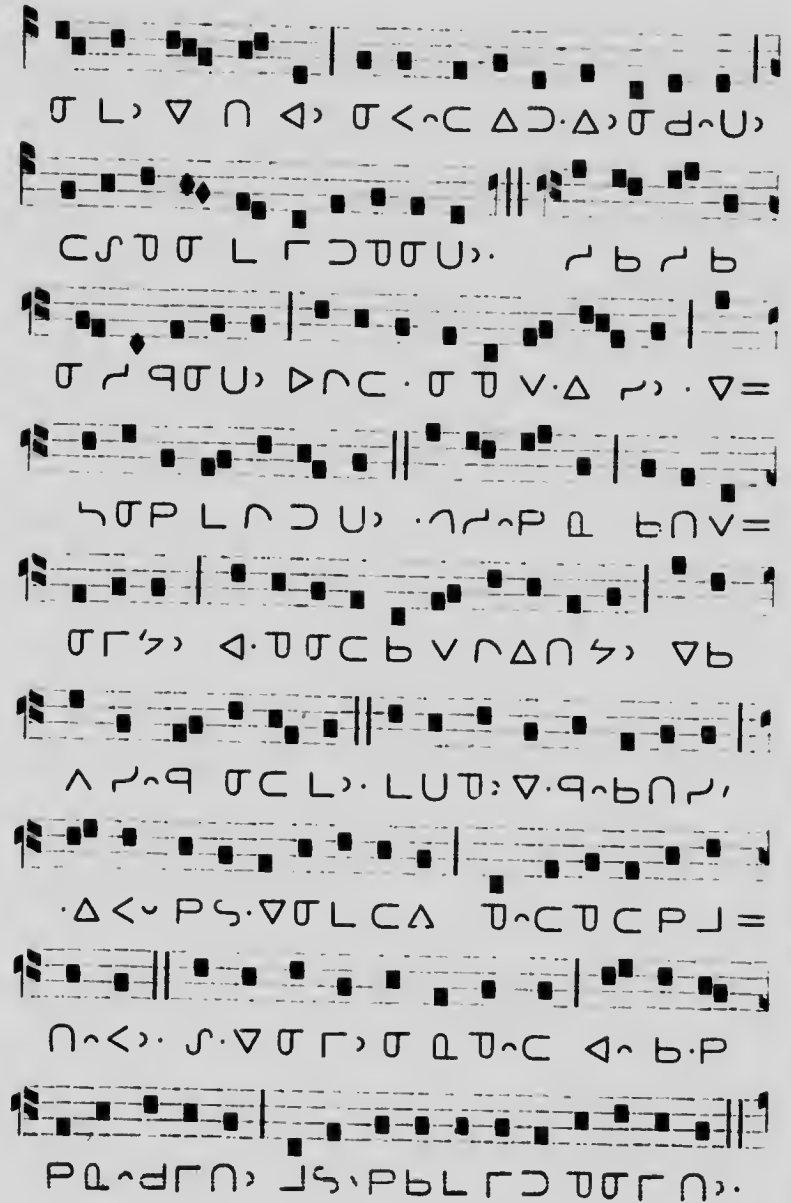 ᓂ ᒪᐣ ᐁ ᑎ ᐊᐣ ᓂ ᐸᐢᑕ ᐃᑐ·ᐃᐣ ᓂ ᑯᐢᑌᐣ
ᑕᔑ ᓀ ᓂ ᒪ ᒥ ᑐ ᓀ ᓂ ᑌᐣ· ᓯ ᑲ ᓯ ᑲ
ᓂ ᓯ ᑫ ᓂ ᑌᐣ ᐅᒋᑕ · ᓂ ᓀ ᐯ·ᐃ ᓯᐣ · ᐁ=
ᓴ ᓂ ᑭ ᒪ ᒋ ᑐ ᑌᐣ ·ᒉᓯᐢᑭ ᓇ ᑲᑎᐯ=
ᓂᒥᔨᐣ ᐊ·ᓀᓂᑕᑲ ᐯᒋᐃᑎᔨᐣ ᐁᑲ
ᐱ ᓯᐢᑫ ᓂᑕ ᒪᐣ· ᒪᑌᓀ: ᐁ·ᑫᐢᑲᑎᓯᐟ
·ᐃᐸᐨ ᑭᓭ·ᐁᓂᒪᑕᐱ ᓀᐢᑕᓀᑕᑭᒧ=
ᑎᐢᐸᐣ· ᔑ·ᐁᓂᒥᐣ ᓂ ᓇᓀᐢᑕ ᐊᐢ ᑲ·ᑭ
ᑭᓇᐢᑯᒥᑎᐣ ᒧᓴᐠ ᑭᑲᒪ ᒥᑐ ᓀᓂᒥᑎᐣ·